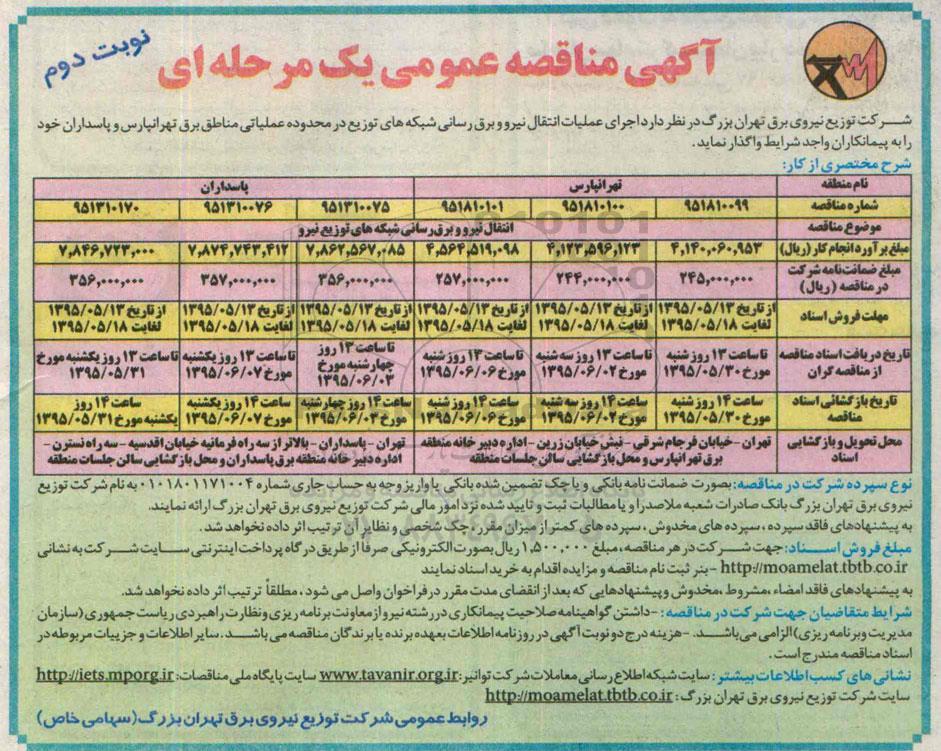 نوبت دوم
آگهی مناقصه عمومی یک مرحله ای
شرکت توزیع نیروی برق تهران بزرگ در نظر دارد اجرای عملیات انتقال نیرو و برق رسانی شبکه های توزیع در محدوده عملیاتی مناطق برق تهرانپارس و پاسداران خود
را به پیمانکاران واجد شرایط واگذار نماید.
شرح مختصری از کار:
نام منطقه تهرانپارس پاسداران
شماره مناقصه ۹۵۱۸۱۰۰۹۹ ۹۵۱۸۱۰۱۰۰ ۹۵۱۸۱۰۱۰۱ ۹۵۱۳۱۰۰۷۵ ۹۵۱۳۱۰۰۷۶ ۹۵۱۳۱۰۱۷۰
موضوع مناقصه انتقال نیرو و برق رسانی شبکه های توزیع نیرو
مبلغ برآورد انجام کار (ریال) ۴,۱۴۰,۰۶۰,۹۵۳ ۴,۱۲۳,۵۹۶,۱۲۳ ۴,۵۶۴,۵۱۹,۰۹۸ ۷,۸۶۲,۵۶۷,۰۸۵ ۷,۸۷۴,۷۴۳,۴۱۲ ۷,۸۴۶,۷۲۳,۰۰۰
مبلغ ضمانت نامه شرکت
در مناقصه (ریال) ۲۴۵,۰۰۰,۰۰۰ ۲۴۴,۰۰۰,۰۰۰ ۲۵۷,۰۰۰,۰۰۰ ۳۵۶,۰۰۰,۰۰۰ ۳۵۷,۰۰۰,۰۰۰ ۳۵۶,۰۰۰,۰۰۰
مهلت فروش اسناد از تاریخ ۱۳۹۵/۰۵/۱۳ از تاریخ ۱۳۹۵/۰۵/۱۳ از تاریخ ۱۳۹۵/۰۵/۱۳ از تاریخ ۱۳۹۵/۰۵/۱۳ از تاریخ ۱۳۹۵/۰۵/۱۳ از تاریخ ۱۳۹۵/۰۵/۱۳
لغایت ۱۳۹۵/۰۵/۱۸ لغایت ۱۳۹۵/۰۵/۱۸ لغایت ۱۳۹۵/۰۵/۱۸ لغایت ۱۳۹۵/۰۵/۱۸ لغایت ۱۳۹۵/۰۵/۱۸ لغایت ۱۳۹۵/۰۵/۱۸
تاریخ دریافت اسناد مناقصه تا ساعت ۱۳ روز شنبه تا ساعت ۱۳ روز سه شنبه تا ساعت ۱۳ روز شنبه تا ساعت ۱۳ روز چهارشنبه مورخ تا ساعت ۱۳ روز یکشنبه تا ساعت ۱۳ روز یکشنبه مورخ
از مناقصه گران مورخ ۱۳۹۵/۰۵/۳۰ مورخ ۱۳۹۵/۰۶/۰۲ مورخ ۱۳۹۵/۰۶/۰۶ ۱۳۹۵/۰۶/۰۳ مورخ ۱۳۹۵/۰۶/۰۷ ۱۳۹۵/۰۵/۳۱
تاریخ بازگشائی اسناد ساعت ۱۴ روز شنبه ساعت ۱۴ روز سه شنبه ساعت ۱۴ روز شنبه ساعت ۱۴ روز چهارشنبه ساعت ۱۴ روز یکشنبه ساعت ۱۴ روز
مناقصه مورخ ۱۳۹۵/۰۵/۳۰ مورخ ۱۳۹۵/۰۶/۰۲ مورخ ۱۳۹۵/۰۶/۰۶ مورخ ۱۳۹۵/۰۶/۰۳ مورخ ۱۳۹۵/۰۶/۰۷ یکشنبه مورخ ۱۳۹۵/۰۵/۳۱
محل تحویل و بازگشایی تهران - خیابان فرجام شرقی - نبش خیابان زرین - اداره دبیرخانه منطقه تهران - پاسداران - بالاتر از سه راه فرمانیه خیابان اقدسیه - سه راه نسترن -
اسناد برق تهرانپارس و محل بازگشایی سالن جلسات منطقه اداره دبیرخانه منطقه برق پاسداران و محل بازگشایی سالن جلسات منطقه
نوع سپرده شرکت در مناقصه: بصورت ضمانت نامه بانکی و یا چک تضمین شده بانکی یا واریز وجه به حساب جاری شماره ۰۱۰۱۸۰۱۱۷۱۰۰۴ به نام شرکت توزیع
نیروی برق تهران بزرگ بانک صادرات شعبه ملاصدرا و یا مطالبات ثبت و تایید شده نزد امور مالی شرکت توزیع نیروی برق تهران بزرگ ارائه نمایند.
به پیشنهادهای فاقد سپرده، سپرده های مخدوش، سپرده های کمتر از میزان مقرر، چک شخصی و نظایر آن ترتیب اثر داده نخواهد شد.
مبلغ فروش اسناد: جهت شرکت در هر مناقصه، مبلغ ۱,۵۰۰,۰۰۰ ریال بصورت الکترونیکی صرفاً از طریق درگاه پرداخت اینترنتی سایت شرکت به نشانی
http://moamelat.tbtb.co.ir - بنر ثبت نام مناقصه و مزایده اقدام به خرید اسناد نمایند
به پیشنهادهای فاقد امضاء، مشروط، مخدوش و پیشنهادهایی که بعد از انقضای مدت مقرر در فراخوان واصل می شود، مطلقاً ترتیب اثر داده نخواهد شد.
شرایط متقاضیان جهت شرکت در مناقصه: - داشتن گواهینامه صلاحیت پیمانکاری در رشته نیرو از معاونت برنامه ریزی و نظارت راهبردی ریاست جمهوری (سازمان
مدیریت و برنامه ریزی) الزامی می باشد. - هزینه درج دو نوبت آگهی در روزنامه اطلاعات بعهده برنده یا برندگان مناقصه می باشد. سایر اطلاعات و جزییات مربوطه در
اسناد مناقصه مندرج است.
نشانی های کسب اطلاعات بیشتر: سایت شبکه اطلاع رسانی معاملات شرکت توانیر: www.tavanir.org.ir سایت پایگاه ملی مناقصات: http://iets.mporg.ir
سایت شرکت توزیع نیروی برق تهران بزرگ: http://moamelat.tbtb.co.ir
روابط عمومی شرکت توزیع نیروی برق تهران بزرگ (سهامی خاص)